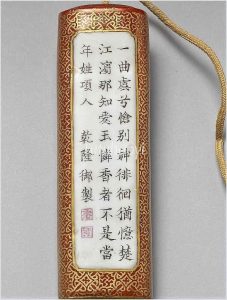 一曲虞兮愴别神徘徊猶憶楚
江濵那知愛玉憐香者不是當
年姓項人 乾隆御製